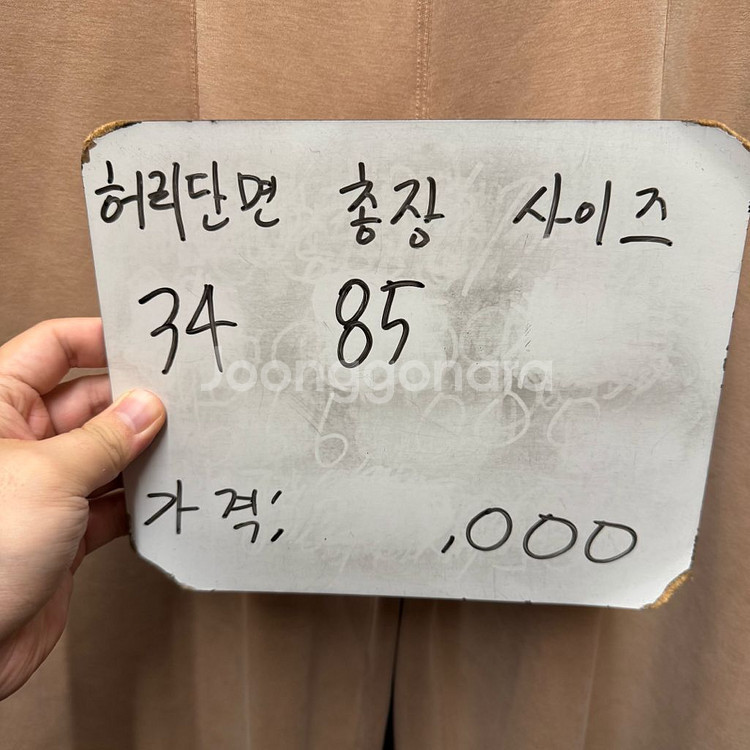 허리단면 총장 사이즈
34 85
Joonggonara
가격; ,000